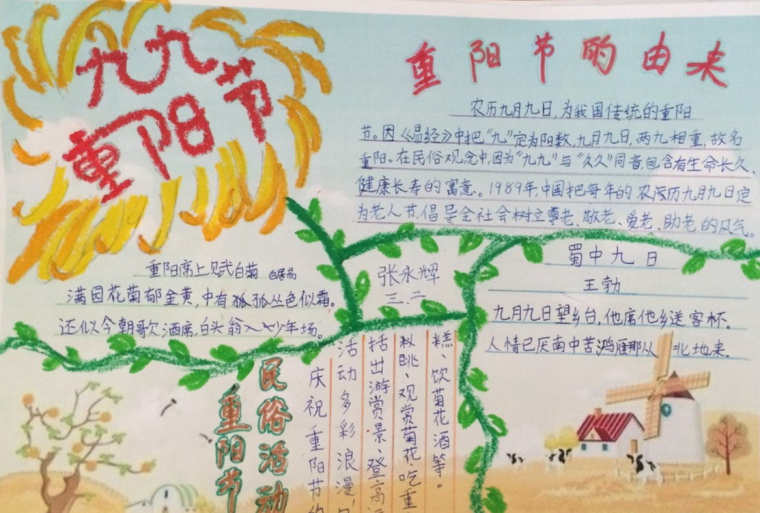 九九
重阳节
重阳节的由来
农历九月九日,为我国传统的重阳
节。因《易经》中把“九”定为阳数,九月九日,两九相重,故名
重阳。在民俗观念中,因为“九九”与“久久”同音,包含有生命长久、
健康长寿的寓意。1989年,中国把每年的农历九月九日定
为老人节,倡导全社会树立尊老、敬老、爱老、助老的风气。
重阳席上见武白菊 白居易
满园花菊郁金黄,中有孤丛色似霜。
还似今朝歌酒席,白头翁入少年场。
张永辉
三.二
蜀中九日
王勃
九月九日望乡台,他席他乡送客杯。
人情已厌南中苦,鸿雁那从北地来.
民俗活动
重阳节
庆祝重阳节
活动多彩浪漫,
括出游赏景、登高
秋眺、观赏菊花、吃重
糕、饮菊花酒等。